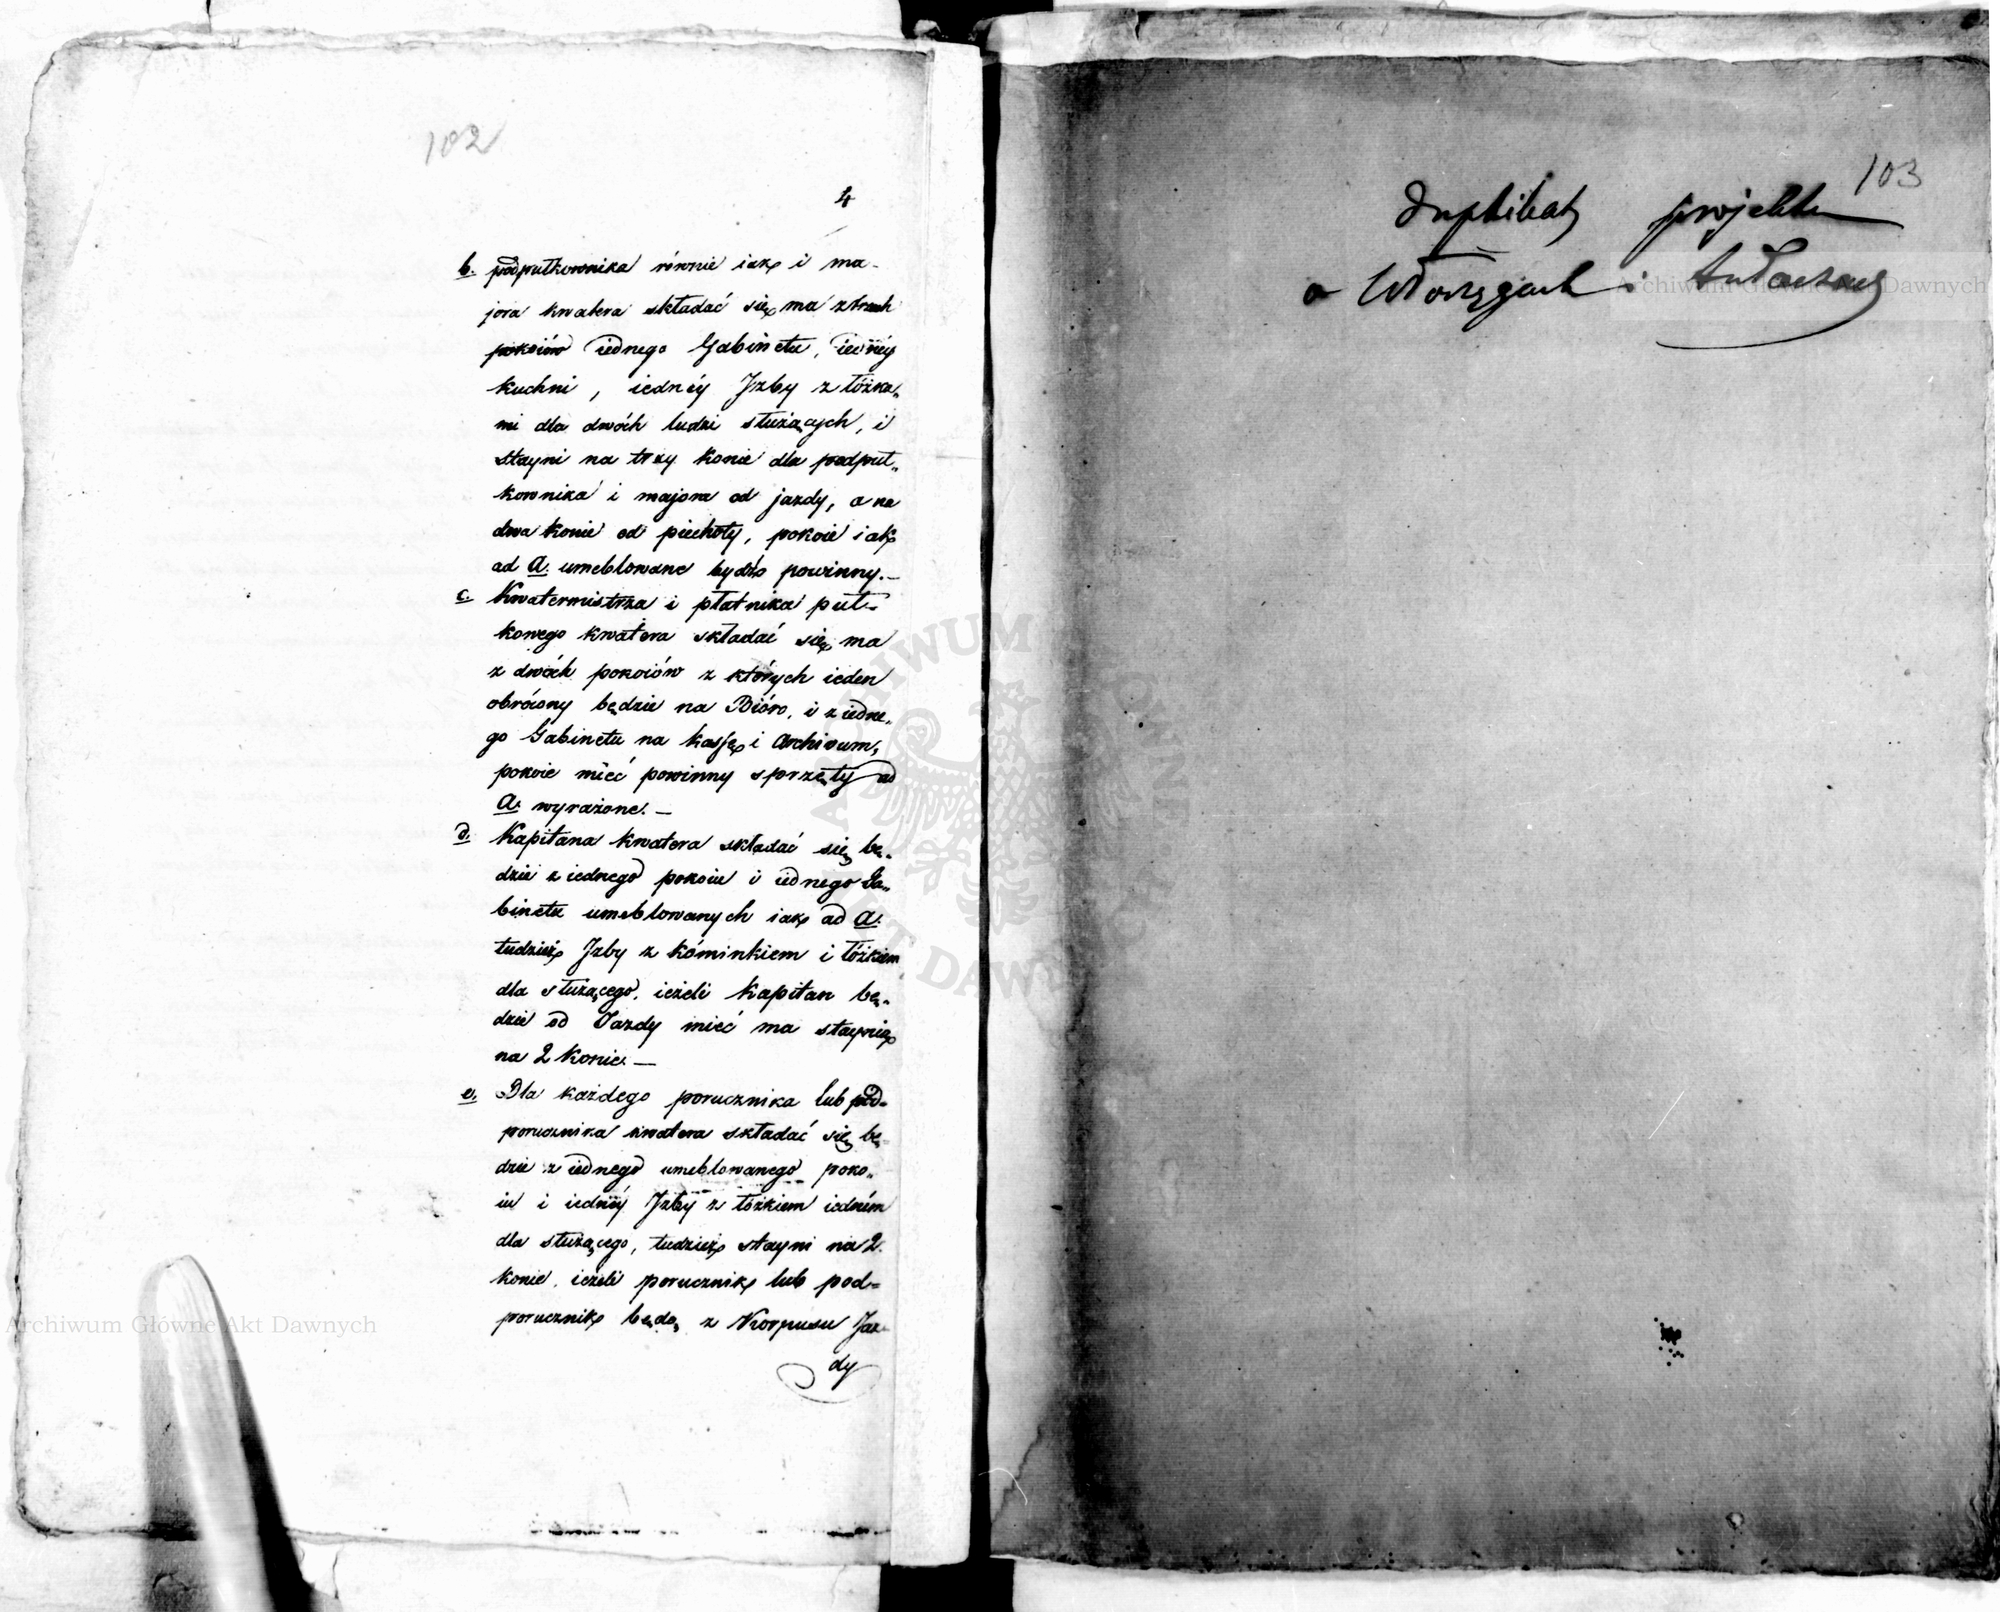 102
4
b. podpułkownika równie iak i ma-
jora kwatera składać się ma z trzech
pokoiów iednego Gabinetu, iednéy
kuchni, iednéy Izby z łóżka„
mi dla dwóch ludzi służących, i
stayni na trzy konie dla podpuł„
kownika i majora od jazdy, a na
dwa konie od piechoty, pokoie iak
ad a. umeblowane bydź powinny.—
c. Kwatermistrza i płatnika puł-
kowego kwatera składać się ma
z dwóch pokoiów z których ieden
obrócony będzie na Bióro, i z iedne„
go Gabinetu na kassę i Archivum,
pokoie mieć powinny sprzęty ad
a. wyrażone.—
d. Kapitana kwatera składać się bę„
dzie z iednego pokoiu i iednego Ga„
binetu umeblowanych iak ad a.
tudzież Izby z kóminkiem i łóżkiem
dla służącego, ieżeli Kapitan bę„
dzie od Jazdy mieć ma staynię
na 2 konie.—
e. Dla każdego porucznika lub pod-
porucznika kwatera składać się bę
dzie z iednego umeblowanego poko„
iu i iednéy Izby z łóżkiem iedném
dla służącego, tudzież stayni na 2.
konie, ieżeli porucznik lub pod-
porucznik będą z Korpusu Jaz-
dy
103
Duplikat projektu
o Włóczęgach i
Archiwum Główne Akt Dawnych
Archiwum Główne Akt Dawnych
ARCHIWUM GŁÓWNE AKT DAWNYCH